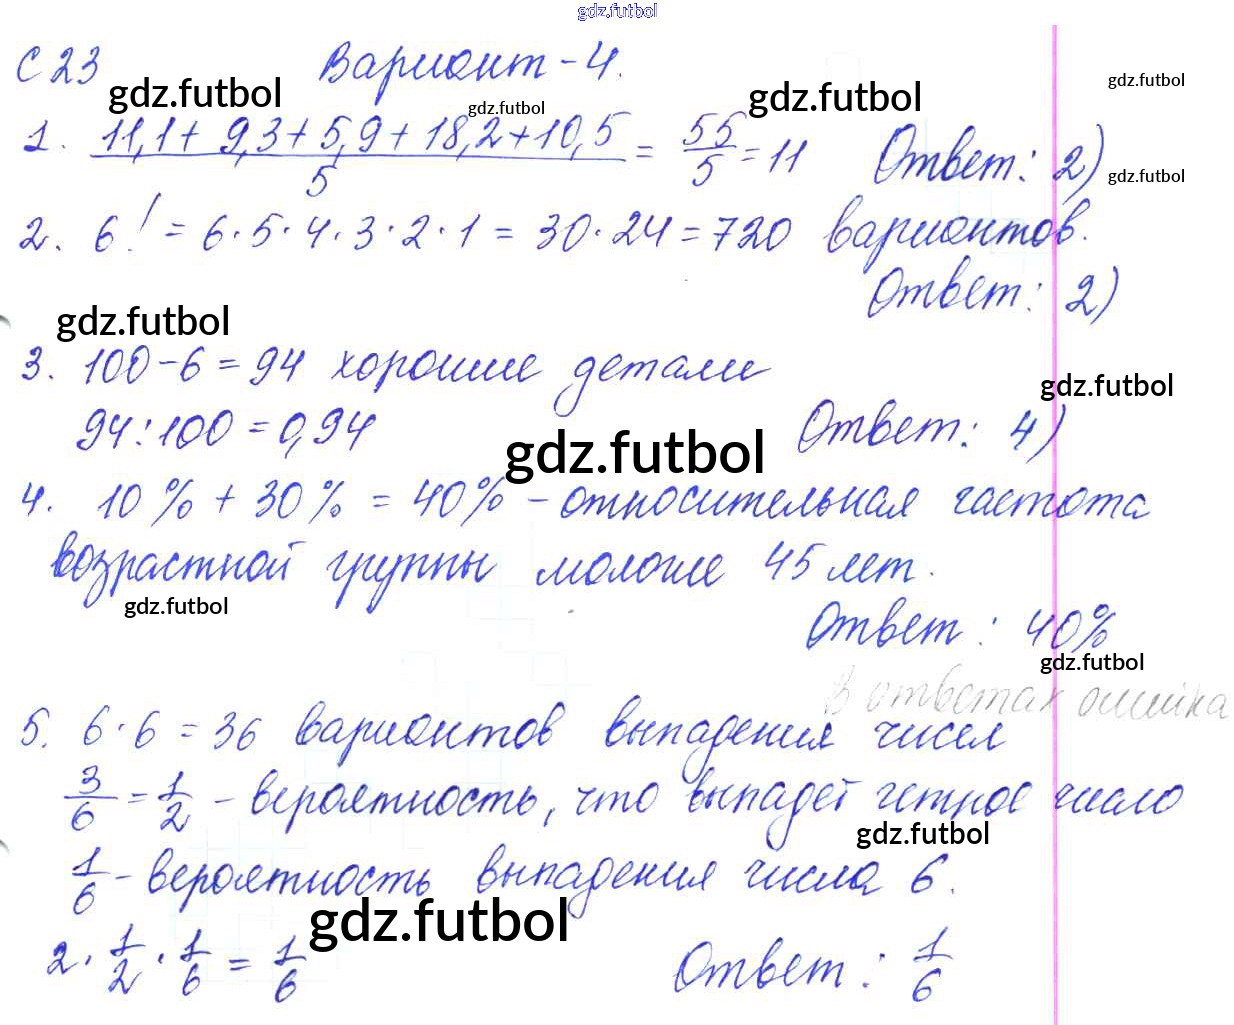 gdz.futbol
С 23 Вариант - 4.
gdz.futbol gdz.futbol gdz.futbol gdz.futbol
1. (11,1 + 9,3 + 5,9 + 18,2 + 10,5)/5 = 55/5 = 11 Ответ: 2)
gdz.futbol
2. 6! = 6·5·4·3·2·1 = 30·24 = 720 вариантов.
Ответ: 2)
gdz.futbol
3. 100 - 6 = 94 хорошие детали
gdz.futbol
94 : 100 = 0,94 Ответ: 4)
gdz.futbol
4. 10% + 30% = 40% - относительная частота
возрастной группы моложе 45 лет.
gdz.futbol
Ответ: 40%
gdz.futbol
В ответах ошибка
5. 6·6 = 36 вариантов выпадения чисел
3/6 = 1/2 - вероятность, что выпадет четное число
gdz.futbol
1/6 - вероятность выпадения числа 6.
gdz.futbol
2 · 1/2 · 1/6 = 1/6 Ответ: 1/6